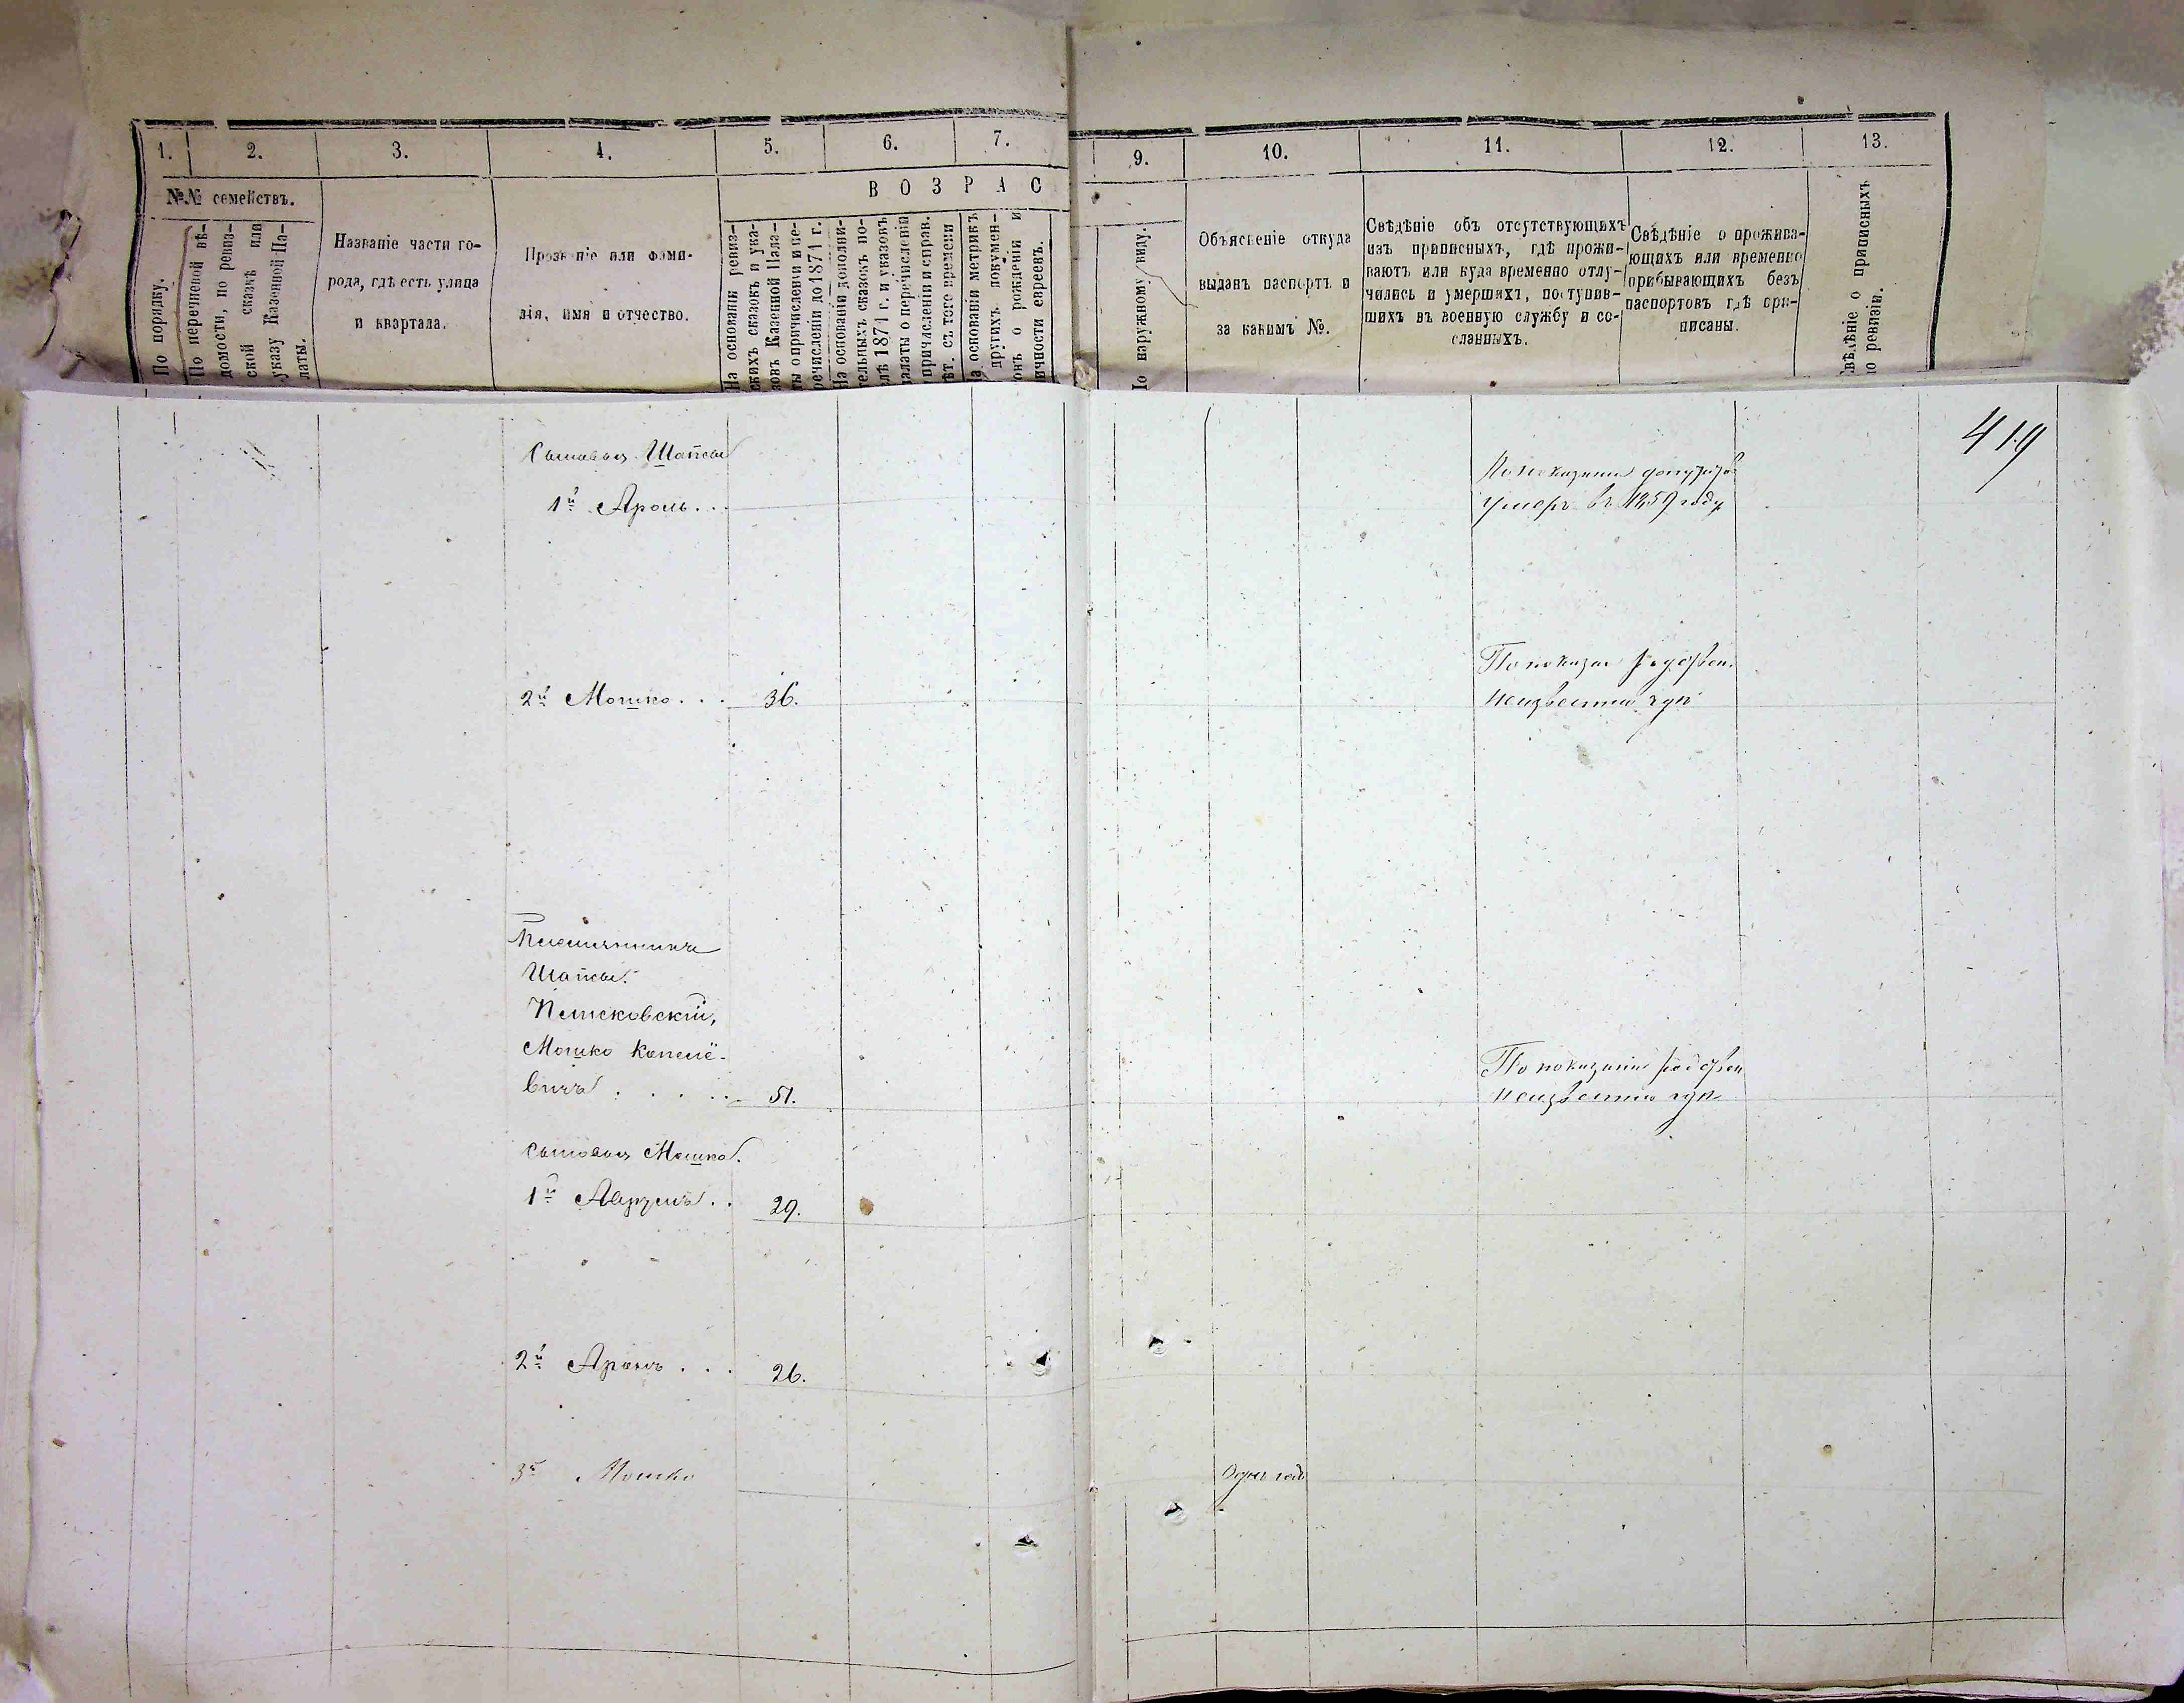 1. 2. 3. 4. 5. 6. 7. 9. 10. 11. 12. 13.
№№ семействъ.
По порядку.
По перечневой вѣ-
домости, по ревиз-
ской сказкѣ или
указу Казенной Па-
латы.
Названіе части го-
рода, гдѣ есть улица
и квартала.
Прозваніе или фами-
лія, имя и отчество.
ВОЗРАС
На основаніи ревиз-
скихъ сказокъ и ука-
зовъ Казенной Пала-
ты о причисленіи и пе-
речисленіи до 1871 г.
На основаніи дополни-
тельныхъ сказокъ по-
слѣ 1871 г. и указовъ
палаты о перечисленіи
причисленіи и справ.
лѣт. съ того времени
на основаніи метрикъ
другихъ докумен-
онъ о рожденіи и
личности евреевъ.
По наружному виду.
Объясненіе откуда
выданъ паспортъ и
за какимъ №.
Свѣдѣніе объ отсутствующихъ
изъ приписныхъ, гдѣ прожи-
ваютъ или куда временно отлу-
чились и умершихъ, поступив-
шихъ въ военную службу и со-
сланныхъ.
Свѣдѣніе о прожива-
ющихъ или временно
прибывающихъ безъ
паспортовъ гдѣ при-
писаны.
Свѣдѣніе о приписныхъ
по ревизіи.
419
Сыновья Шапсы
1й Аронъ...
По показанію
умеръ въ 1859 году
2й Мошко... 36.
По показан
неизвестно гдѣ
Племянникъ
Шапсы.
Мошко
вичъ..... 51.
По показанію
неизвестно гдѣ
Сыновья Мошка.
1й Аврумъ.. 29.
2й Аронъ... 26.
3й Мошко
Одинъ годъ